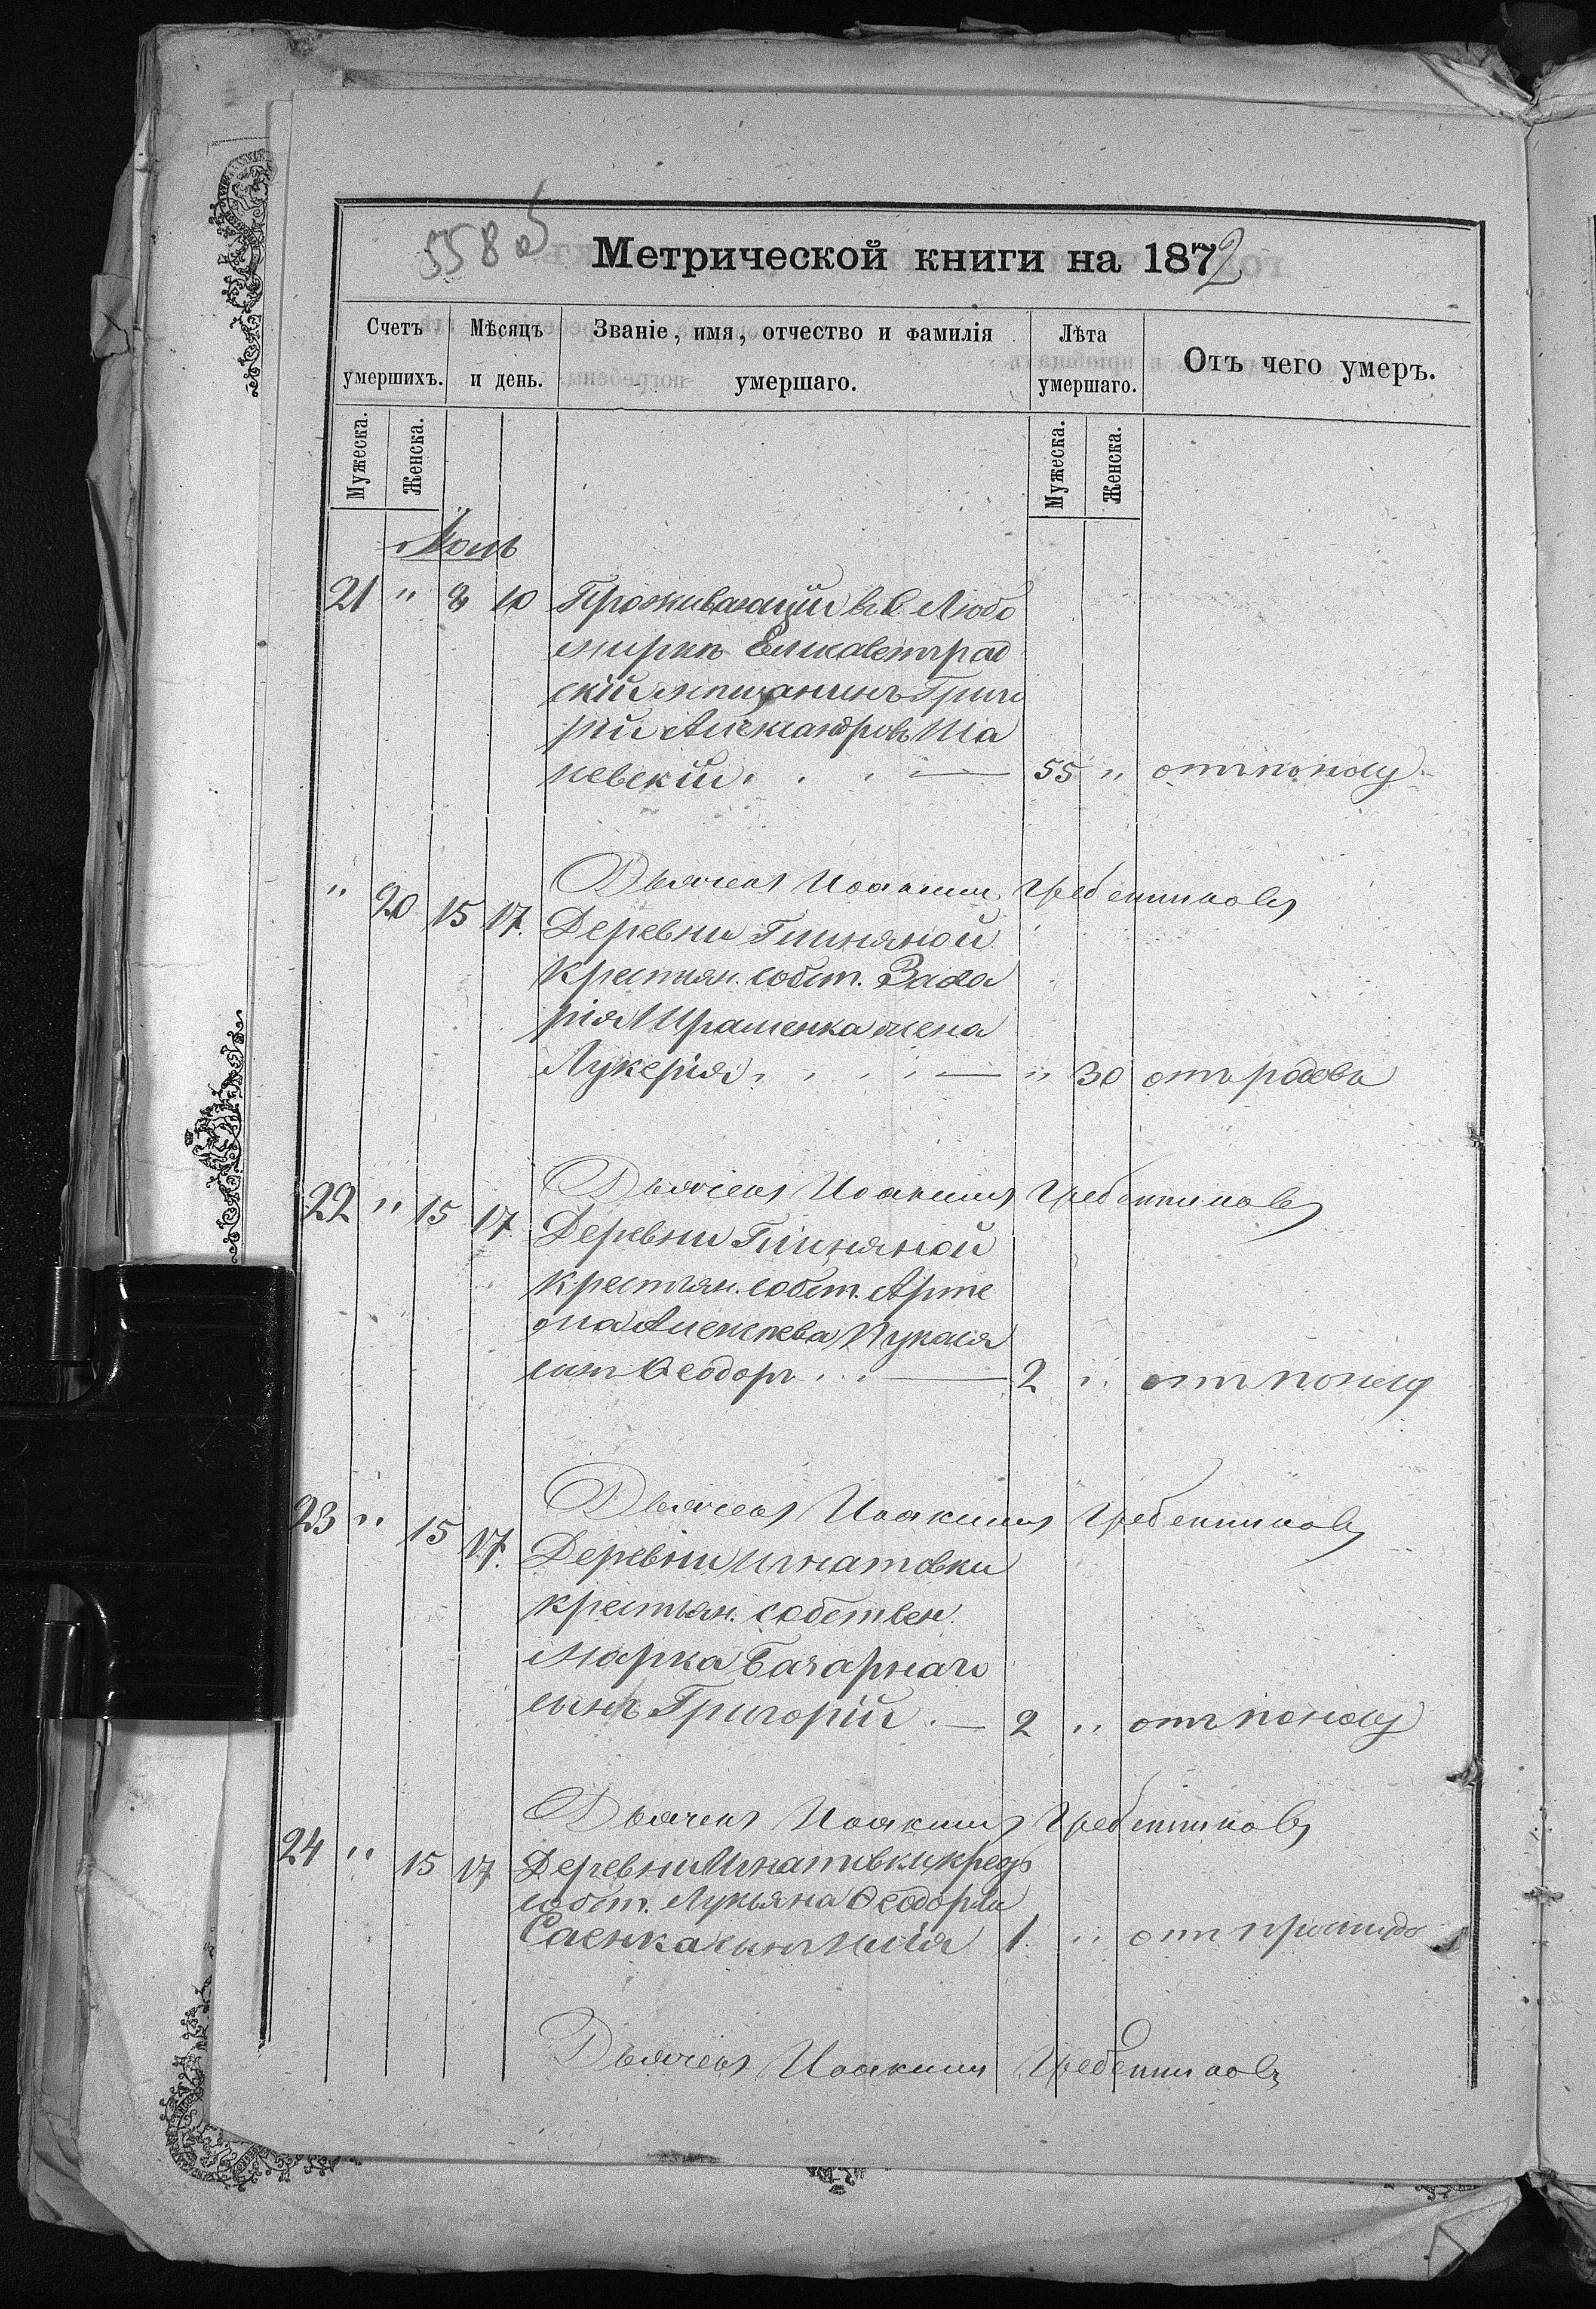 5585
Метрической книги на 1872
Счетъ умершихъ. Мѣсяцъ и день. Званіе, имя, отчество и фамилія умершаго. Лѣта умершаго. Отъ чего умеръ.
Мужеска. Женска. Мужеска. Женска.
Іюль
21 " 8 10 Проживающій в с. Любо
миркѣ Елисаветград
скій мѣщанинъ Григо
рій Александровъ
невскій. . . . — 55 " отъ поносу
Дьячекъ Иоакимъ Гребенниковъ
" 20 15 17. Деревни Глиняной
крестьян. собст. Заха
рія жена
Лукерія. . . . . — " 30 отъ родовъ
Дьячекъ Иоакимъ Гребенниковъ
22 " 15 17. Деревни Глиняной
крестьян. собст. Арте
ма Алексѣева
сынъ Ѳеодоръ . . . — 2 " отъ поносу
Дьячекъ Иоакимъ Гребенниковъ
23 " 15 17. Деревни Игнатовки
крестьян. собствен.
Марка
сынъ Григорій . — 2 " отъ поносу
Дьячекъ Иоакимъ Гребенниковъ
24 " 15 17 Деревни Игнатовки крест
собст. Лукьяна Ѳеодорова
Саенка сынъ Илія 1 " отъ
Дьячекъ Иоакимъ Гребенниковъ